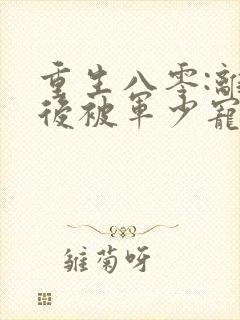 重生八零:離
後被軍少寵
雛菊呀